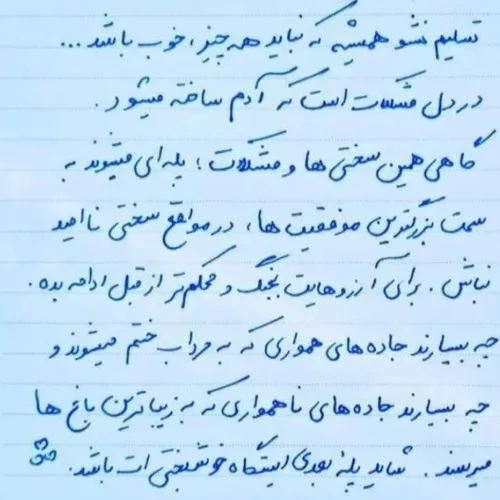 تسلیم نشو همیشه که نباید همه چیز، خوب باشد...
در دل مشکلات است که آدم ساخته میشود.
گاهی همین سختی ها و مشکلات؛ پله ای میشوند به
سمت بزرگترین موفقیت ها، در مواقع سختی ناامید
نباش. برای آرزوهایت بجنگ و محکم تر از قبل ادامه بده.
چه بسیارند جاده های همواری که به مرداب ختم میشوند و
چه بسیارند جاده های ناهمواری که به زیباترین باغ ها
میرسند. شاید پلهٔ بعدی ایستگاه خوشبختی ات باشد.